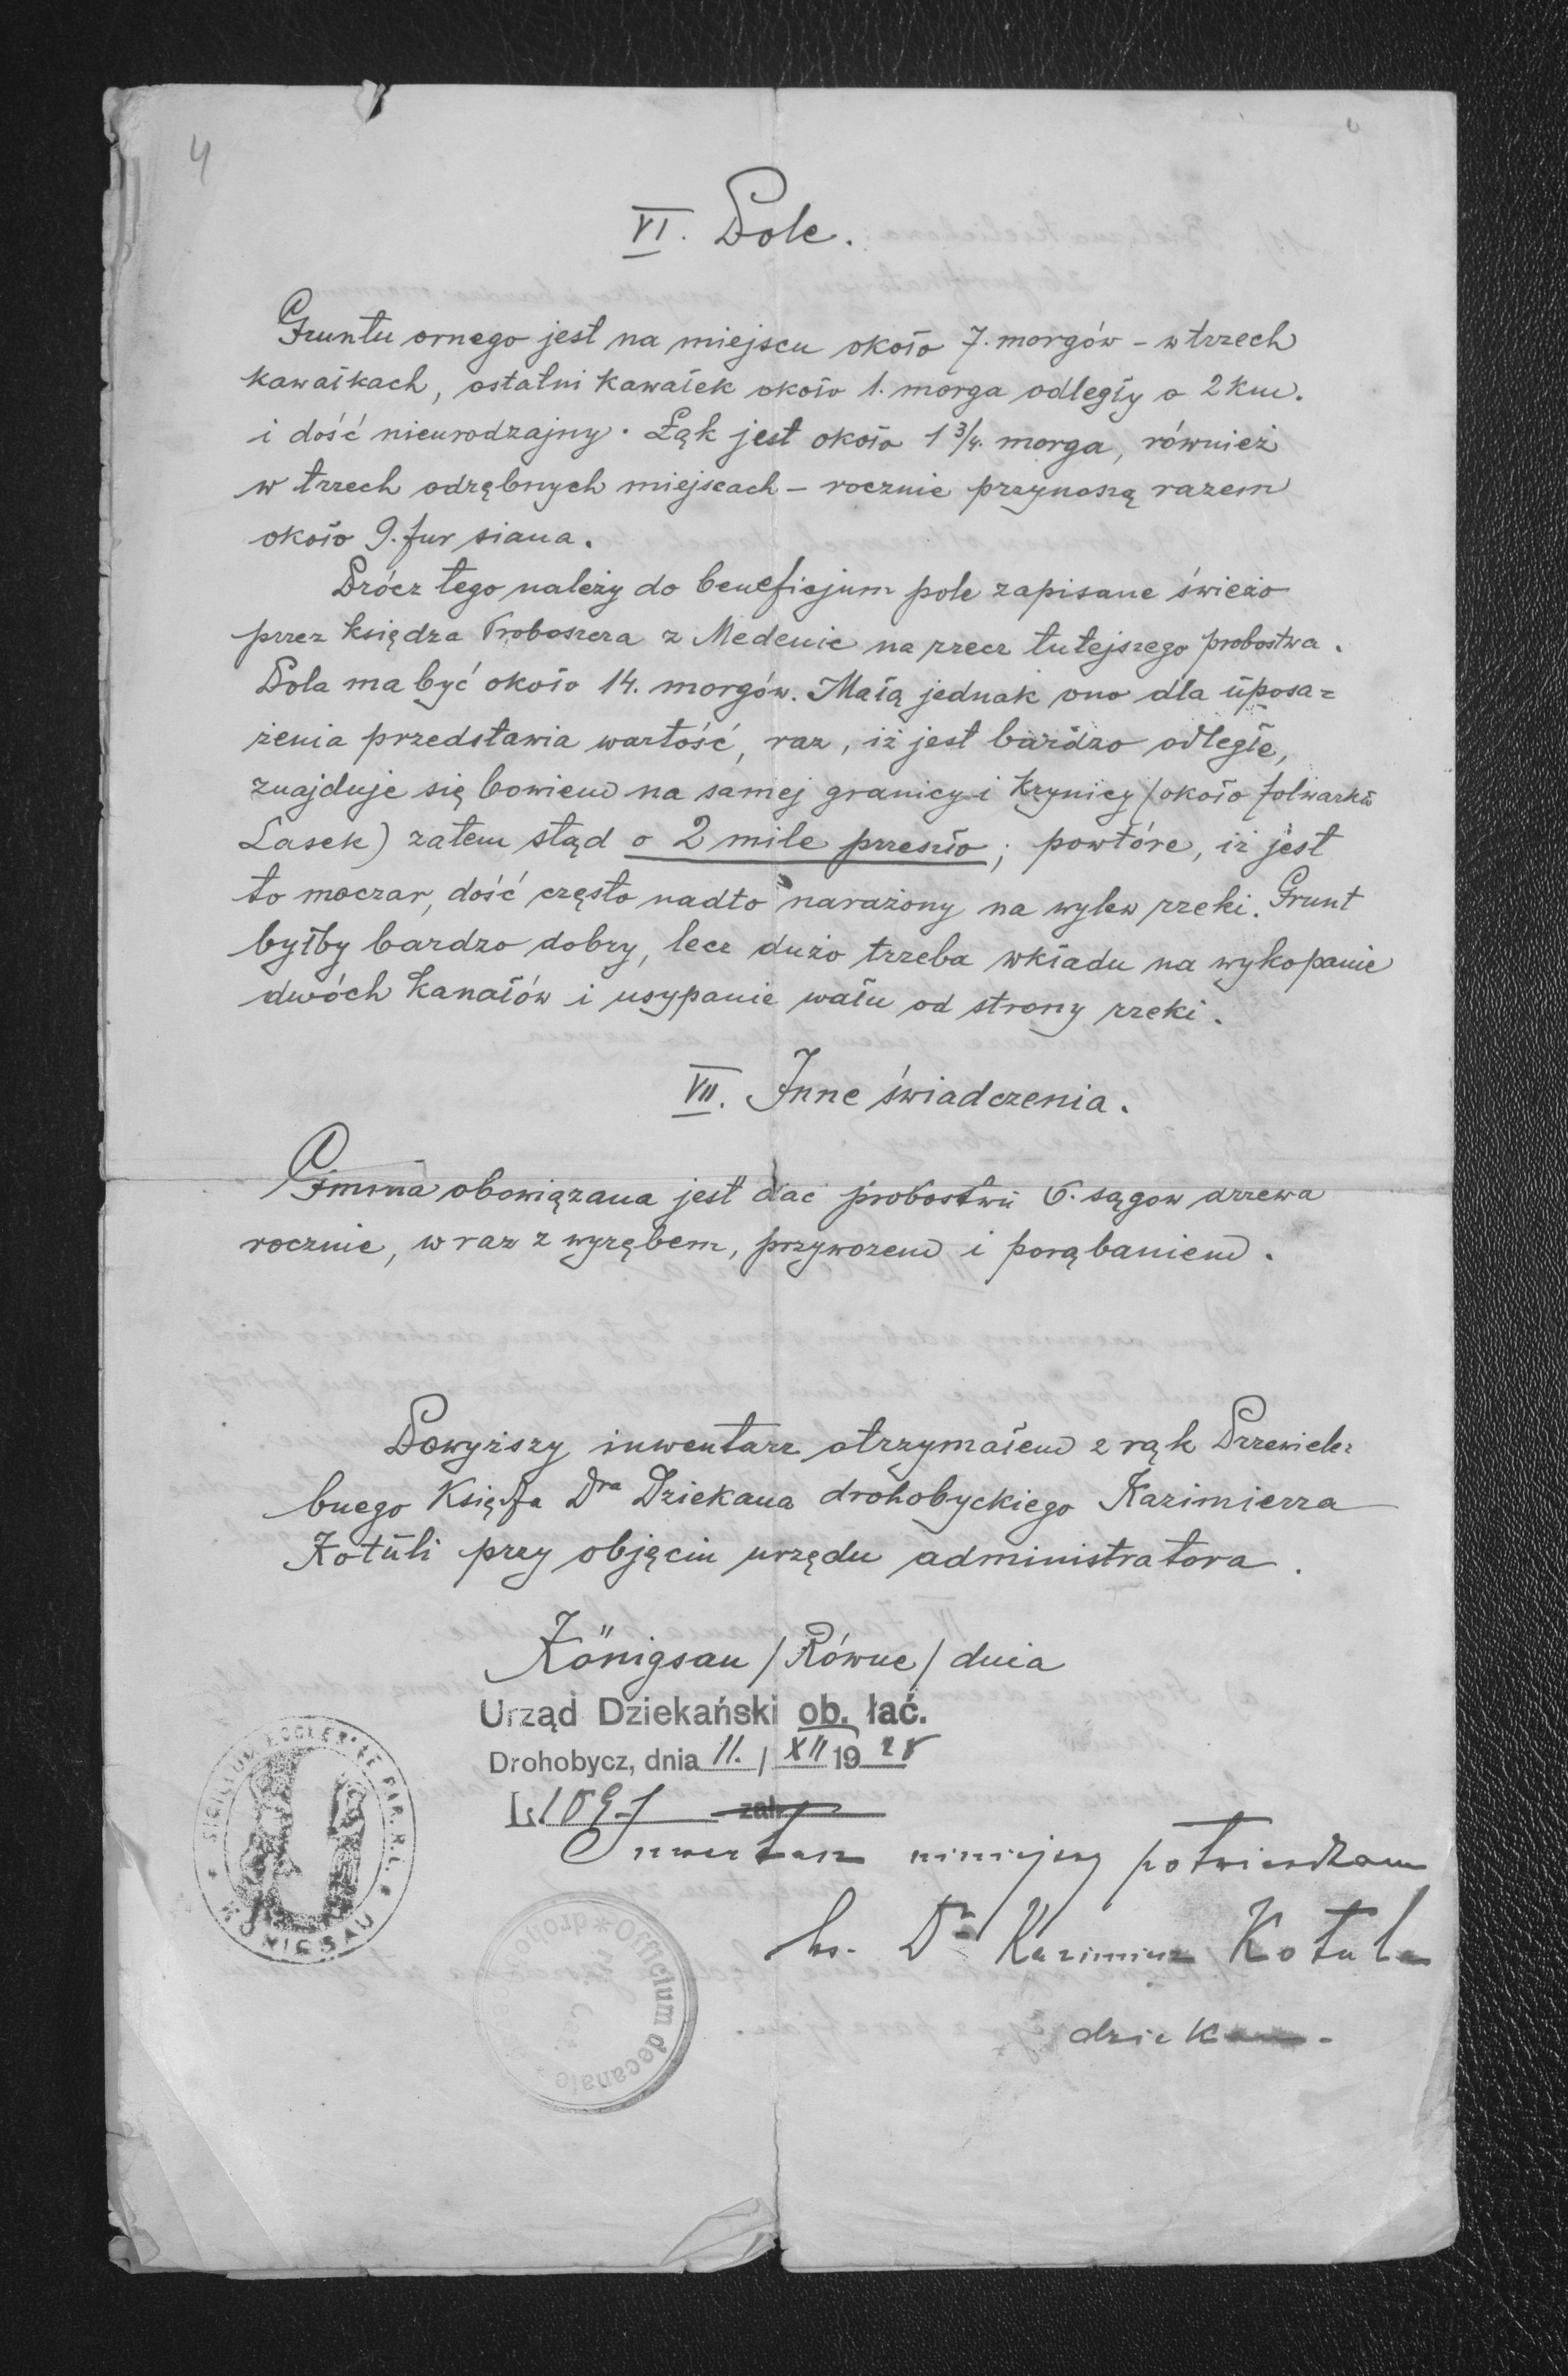 4
VI. Pole.
Gruntu ornego jest na miejscu około 7. morgów - w trzech
kawałkach, ostatni kawałek około 1. morga odległy o 2 km.
i dość nieurodzajny. Łąk jest około 1 3/4. morga, również
w trzech odrębnych miejscach - rocznie przynoszą razem
około 9. fur siana.
Prócz tego należy do beneficjum pole zapisane świeżo
przez księdza Proboszcza z Medenic na rzecz tutejszego probostwa.
Pola ma być około 14. morgów. Małą jednak ono dla uposa=
żenia przedstawia wartość, raz, iż jest bardzo odległe,
znajduje się bowiem na samej granicy i Krynicy /około folwarku
Lasek) zatem stąd o 2 mile przeszło; powtóre, iż jest
to moczar, dość często nadto narażony na wylew rzeki. Grunt
byłby bardzo dobry, lecz dużo trzeba wkładu na wykopanie
dwóch kanałów i usypanie wału od strony rzeki.
VII. Inne świadczenia.
Gmina obowiązana jest dać probostwu 6. sągów drzewa
rocznie, wraz z wyrębem, przywozem i porąbaniem.
Powyższy inwentarz otrzymałem z rąk Przewiele=
bnego Księdza Dra Dziekana drohobyckiego Kazimierza
Kotuli przy objęciu urzędu administratora.
Königsau /Równe/ dnia
Urząd Dziekański ob. łać.
Drohobycz, dnia 11. / XII 19 28
L. zał.
Inwentarz niniejszy potwierdzam
ks. Dr Kazimierz Kotula
dziekan.
SIGILLUM ECCLES. PAR. R. L. KÖNIGSAU
Officium decanale